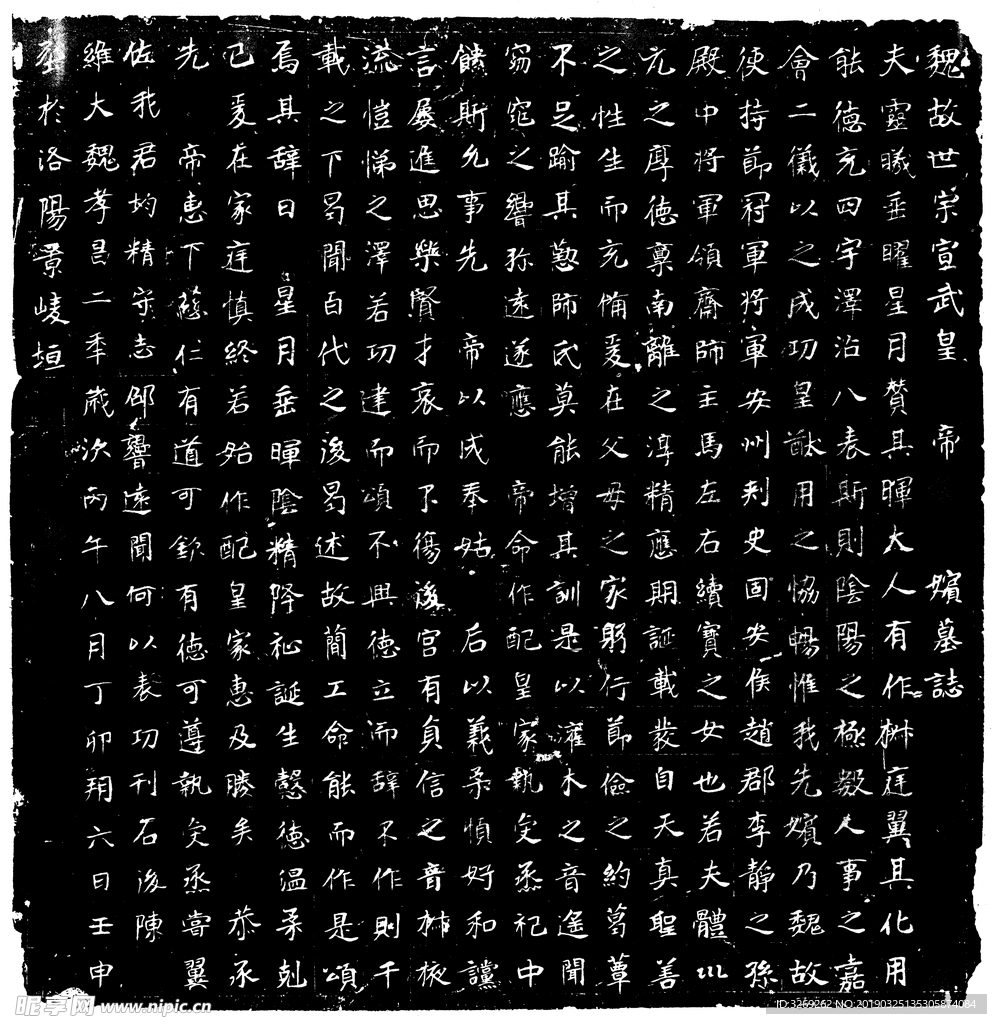 魏故世宗宣武皇 帝 嬪墓誌
夫靈曦垂曜星月賛其暉大人有作椒庭翼其化用
能德充四宇澤沾八表斯則陰陽之極數人事之嘉
會二儀以之成功皇猷用之恊暢惟我先嬪乃魏故
使持節冠軍將軍安州刾史固安侯趙郡李靜之孫
殿中將軍領齋師主馬左右續寶之女也若夫體巛
元之厚德稟南離之淳精應期誕載發自天真聖善
之性生而充俻爰在父母之家躬行節儉之約葛蕈
不足踰其懃師氏莫能增其訓是以灌木之音遥聞
窈窕之響弥遠遂應 帝命作配皇家執爨烝祀中
饋斯允事先 帝以成奉姑 后以義柔慎好和讜
言屡進思樂賢才哀而不傷後宮有貞信之音椒掖
流愷悌之澤若功建而頌不興德立而辞不作則千
載之下曷聞百代之後曷述故簡工命能而作是頌
焉其辞曰 星月垂暉陰精降祉誕生懿德温柔剋
己爰在家庭慎終若始作配皇家惠及勝矣 恭承
先 帝惠下慈仁有道可欽有德可遵執爨烝嘗翼
佐我君均精守志邵響遠聞何以表功刊石後陳
維大魏孝昌二年歲次丙午八月丁卯朔六日壬申
於洛陽景崚垣
昵享网 www.nipic.cn
ID:3259262 NO:20190325135305874084